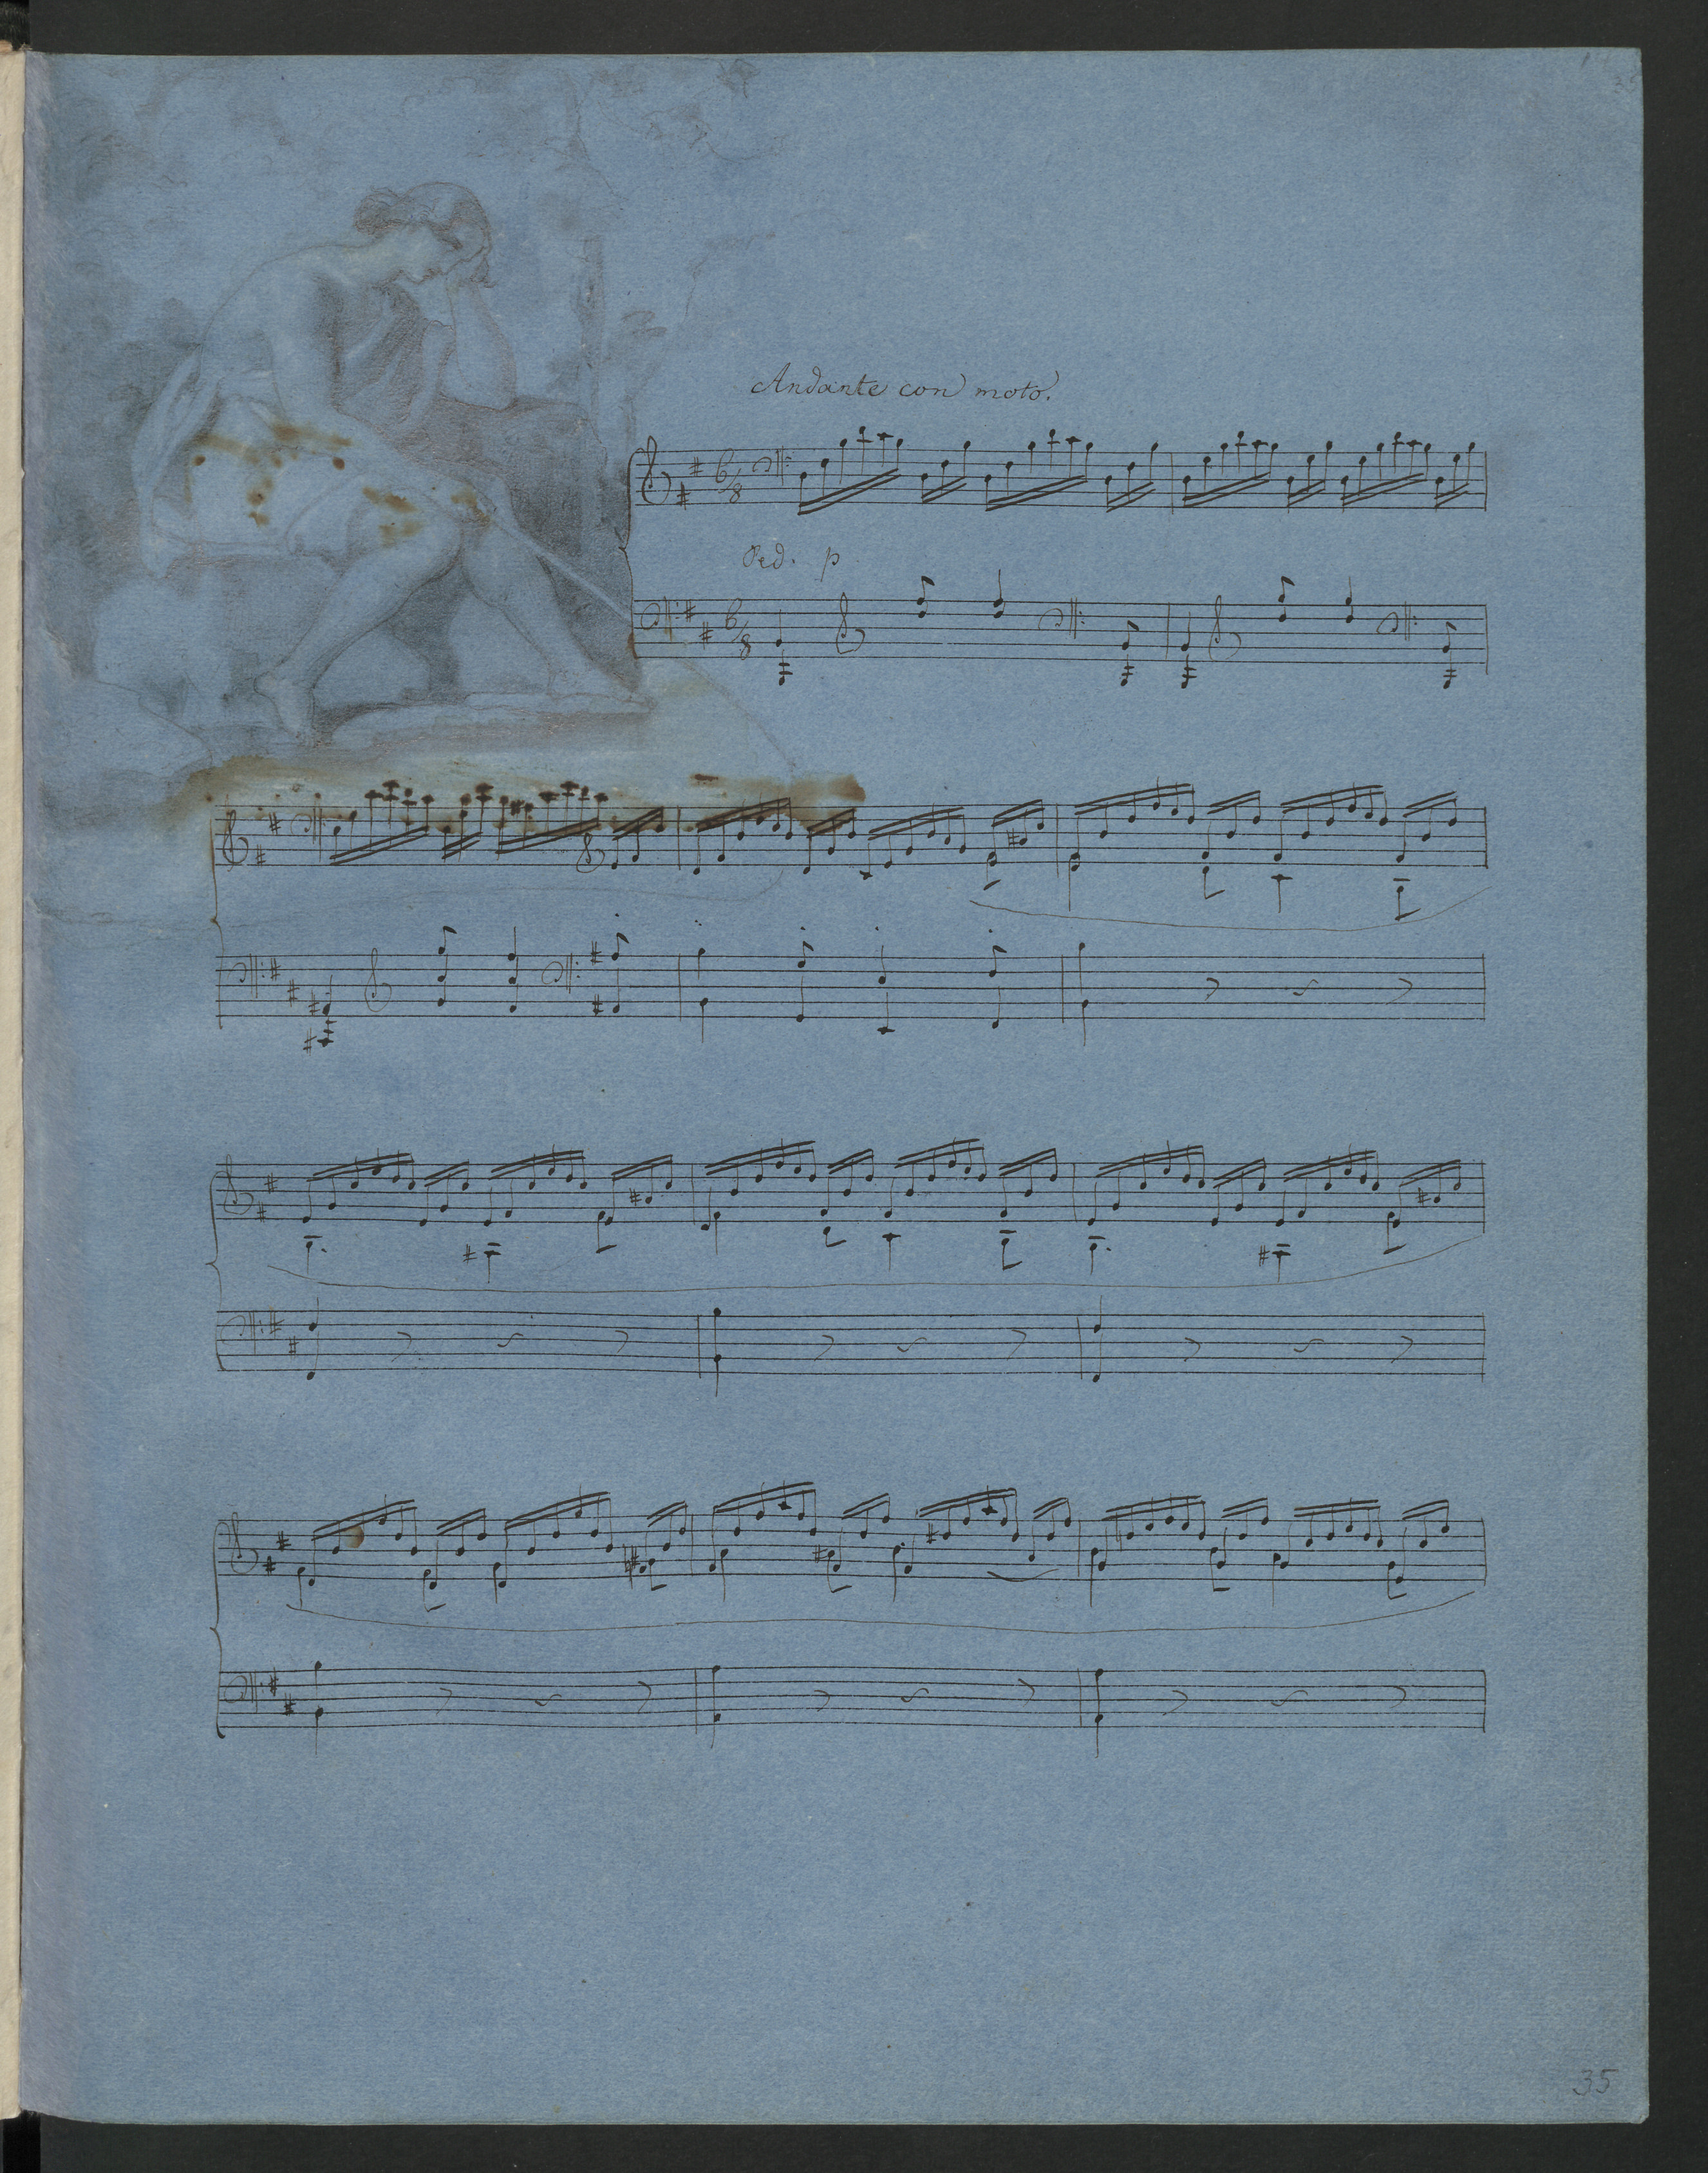 Andante con moto.
6/8
Ped. p
6/8
35